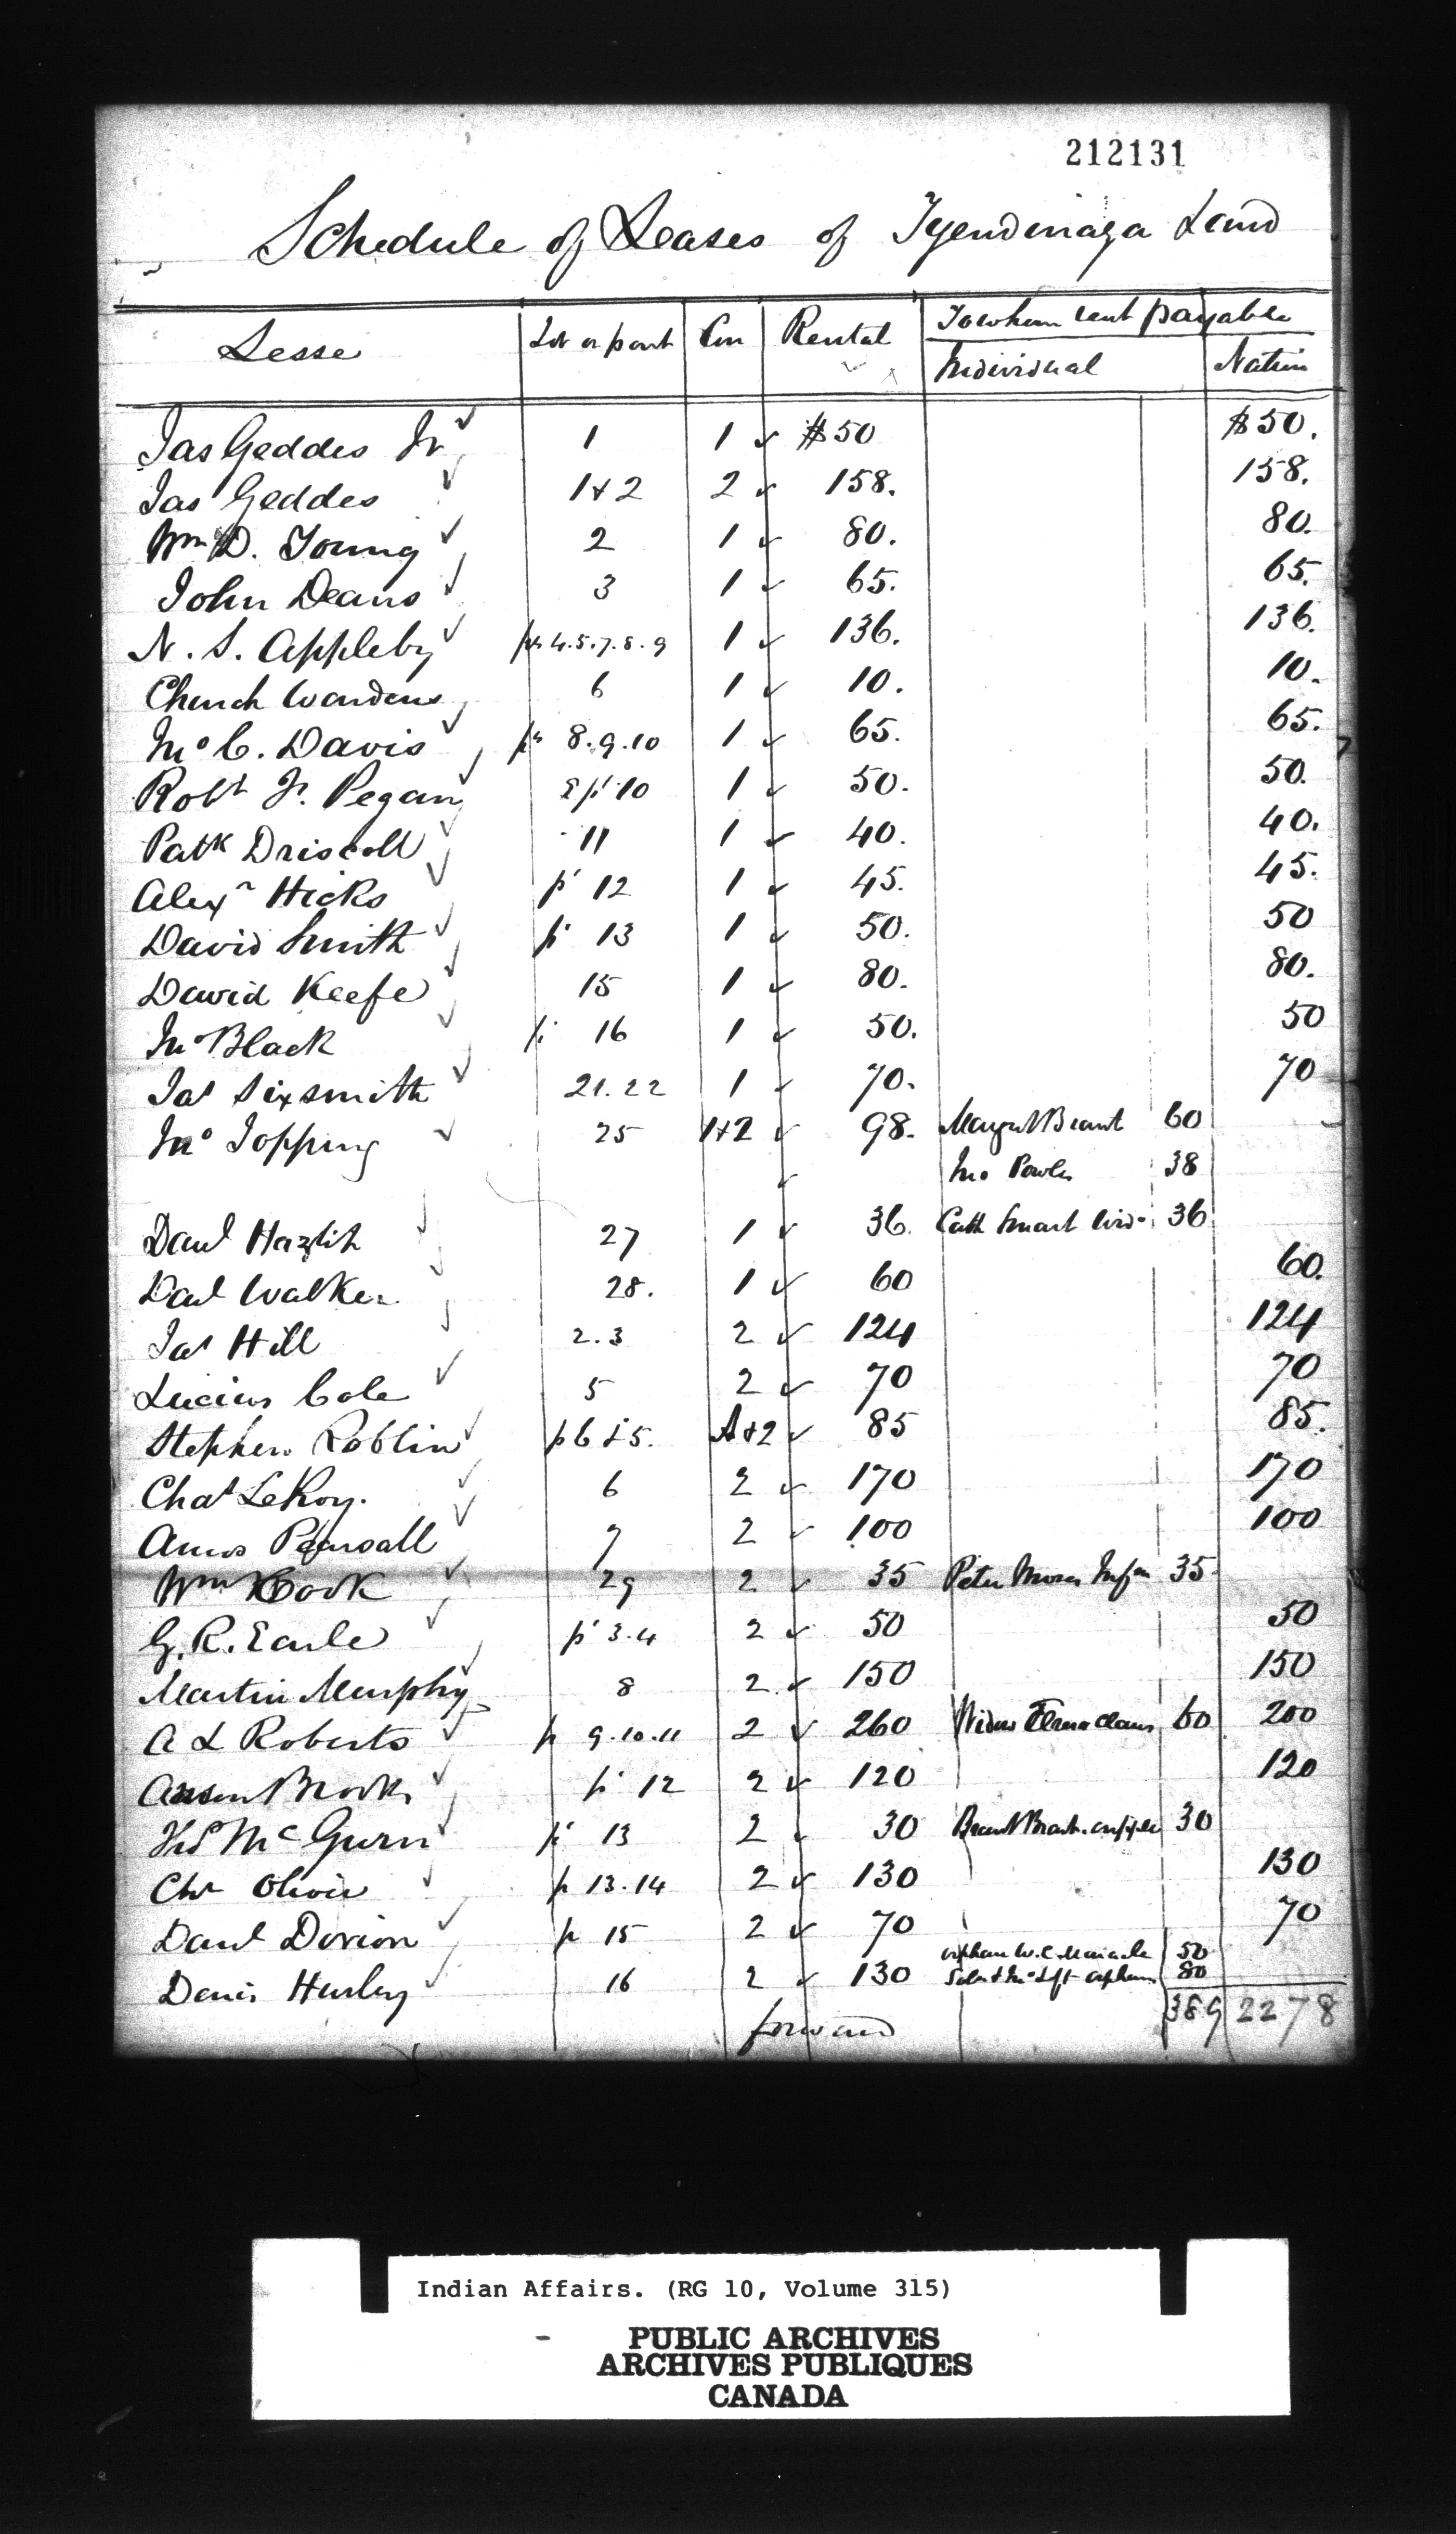 212131
Schedule of Leases of Tyendinaga Land
Lesse Lot or part Con Rental To whom rent payable
Individual Nation
Jas Geddes Jr 1 1 $50 $50.
Jas Geddes 1+2 2 158. 158.
Wm D. Young 2 1 80. 80.
John Deans 3 1 65. 65.
N. S. Appleby pts 4.5.7.8.9 1 136. 136.
Church Wardens 6 1 10. 10.
Jno C. Davis pts 8.9.10 1 65. 65.
Robt Jr. Pegan E pt 10 1 50. 50.
Patk Driscoll 11 1 40. 40.
Alexr Hicks pt 12 1 45. 45.
David Smith pt 13 1 50. 50
David Keefe 15 1 80. 80.
Jno Black pt 16 1 50. 50
Jas Sixsmith 21.22 1 70. 70
Jno Topping 25 1+2 98. Margret Brant 60
Jno Powles 38
Danl Hazlit 27 1 36. Cath Smart Wid. 36
Danl Walker 28. 1 60 60.
Jas Hill 2.3 2 124 124
Lucius Cole 5 2 70 70
Stephen Roblin p 6 & 5. A+2 85 85.
Chas LeRoy. 6 2 170 170
Amos Pearsall 7 2 100 100
Wm Cook 29 2 35 Peter Moses 35
G. R. Earle pt 3.4 2 50 50
Martin Murphy 8 2 150 150
A L Roberts p 9.10.11 2 260 Widow 60 200
Anson Brooks pt 12 2 120 120
McGurn pt 13 2 30 Brant Brant 30
Chr Oliver p 13.14 2 130 130
Danl Dorion p 15 2 70 70
orphan W. C. Maracle 50
Denis Hurley 16 2 130 orphans 80
forward 389 2278
Indian Affairs. (RG 10, Volume 315)
PUBLIC ARCHIVES
ARCHIVES PUBLIQUES
CANADA